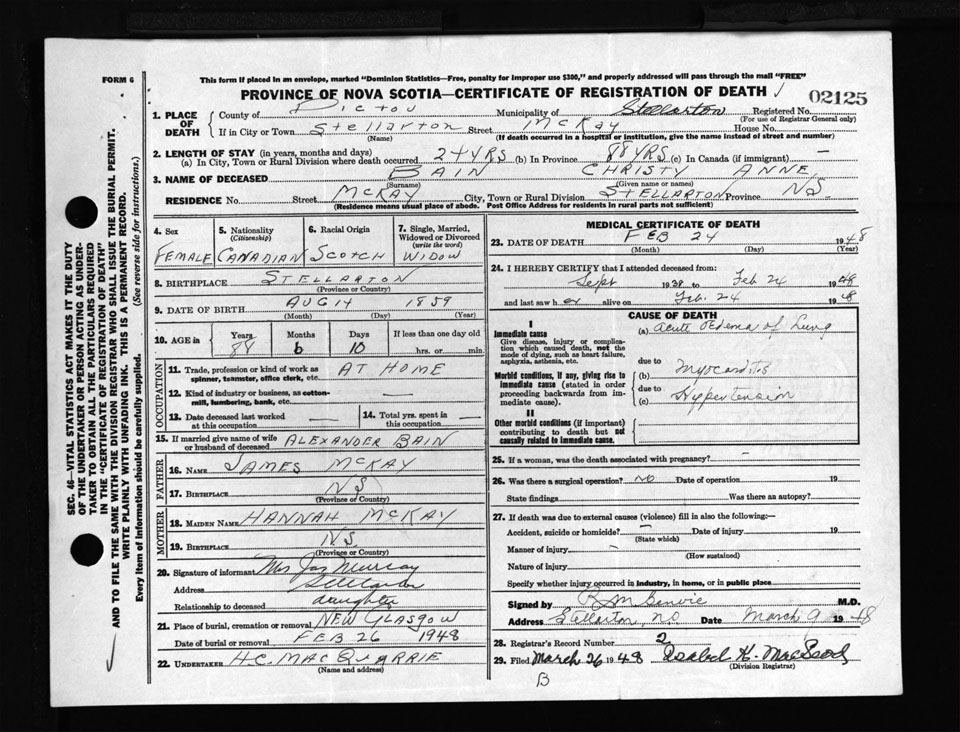 FORM 6
This form if placed in an envelope, marked "Dominion Statistics—Free, penalty for improper use $300," and properly addressed will pass through the mail "FREE"
PROVINCE OF NOVA SCOTIA—CERTIFICATE OF REGISTRATION OF DEATH
02125
1. PLACE OF DEATH County of PICTOU Municipality of Stellarton Registered No.
(For use of Registrar General only)
If in City or Town STELLARTON Street McKAY House No.
(Name) (If death occurred in a hospital or institution, give the name instead of street and number)
2. LENGTH OF STAY (in years, months and days)
(a) In City, Town or Rural Division where death occurred 24 YRS (b) In Province 88 YRS (c) In Canada (if immigrant) —
3. NAME OF DECEASED BAIN CHRISTY ANNE
(Surname) (Given name or names)
RESIDENCE No. Street McKAY City, Town or Rural Division STELLARTON Province NS
(Residence means usual place of abode. Post Office Address for residents in rural parts not sufficient)
4. Sex FEMALE
5. Nationality (Citizenship) CANADIAN
6. Racial Origin SCOTCH
7. Single, Married, Widowed or Divorced (write the word) WIDOW
8. BIRTHPLACE STELLARTON
(Province or Country)
9. DATE OF BIRTH AUG 14 1859
(Month) (Day) (Year)
10. AGE in Years 88 Months 6 Days 10 If less than one day old hrs. or min.
OCCUPATION
11. Trade, profession or kind of work as spinner, teamster, office clerk, etc. AT HOME
12. Kind of industry or business, as cotton-mill, lumbering, bank, etc. —
13. Date deceased last worked at this occupation —
14. Total yrs. spent in this occupation —
15. If married give name of wife or husband of deceased ALEXANDER BAIN
FATHER
16. NAME JAMES McKAY
17. BIRTHPLACE NS
(Province or Country)
MOTHER
18. MAIDEN NAME HANNAH McKAY
19. BIRTHPLACE NS
(Province or Country)
20. Signature of informant Mrs Jas Murray
Address Stellarton
Relationship to deceased daughter
21. Place of burial, cremation or removal NEW GLASGOW
Date of burial or removal FEB 26 1948
22. UNDERTAKER H.C. MACQUARRIE
(Name and address)
MEDICAL CERTIFICATE OF DEATH
23. DATE OF DEATH FEB 24 1948
(Month) (Day) (Year)
24. I HEREBY CERTIFY that I attended deceased from:
Sept 1938 to Feb 24 1948
and last saw her alive on Feb. 24 1948
CAUSE OF DEATH
I
Immediate cause
Give disease, injury or complication which caused death, not the mode of dying, such as heart failure, asphyxia, asthenia, etc.
(a) Acute Edema of Lung
due to
Morbid conditions, if any, giving rise to immediate cause (stated in order proceeding backwards from immediate cause).
(b) Myocarditis
due to
(c) Hypertension
II
Other morbid conditions (if important) contributing to death but not causally related to immediate cause.
25. If a woman, was the death associated with pregnancy? —
26. Was there a surgical operation? NO Date of operation 19
State findings Was there an autopsy?
27. If death was due to external causes (violence) fill in also the following:—
Accident, suicide or homicide? — Date of injury 19
(State which)
Manner of injury —
(How sustained)
Nature of injury
Specify whether injury occurred in industry, in home, or in public place
Signed by M.D.
Address Stellarton, NS Date March 9 1948
28. Registrar's Record Number 2
29. Filed March 26 1948 Isabel H. MacLeod
(Division Registrar)
B
SEC. 46—VITAL STATISTICS ACT MAKES IT THE DUTY
OF THE UNDERTAKER OR PERSON ACTING AS UNDERTAKER TO OBTAIN ALL THE PARTICULARS REQUIRED
IN THE "CERTIFICATE OF REGISTRATION OF DEATH"
AND TO FILE THE SAME WITH THE DIVISION REGISTRAR WHO SHALL ISSUE THE BURIAL PERMIT.
WRITE PLAINLY WITH UNFADING INK. THIS IS A PERMANENT RECORD.
Every item of information should be carefully supplied. (See reverse side for instructions.)